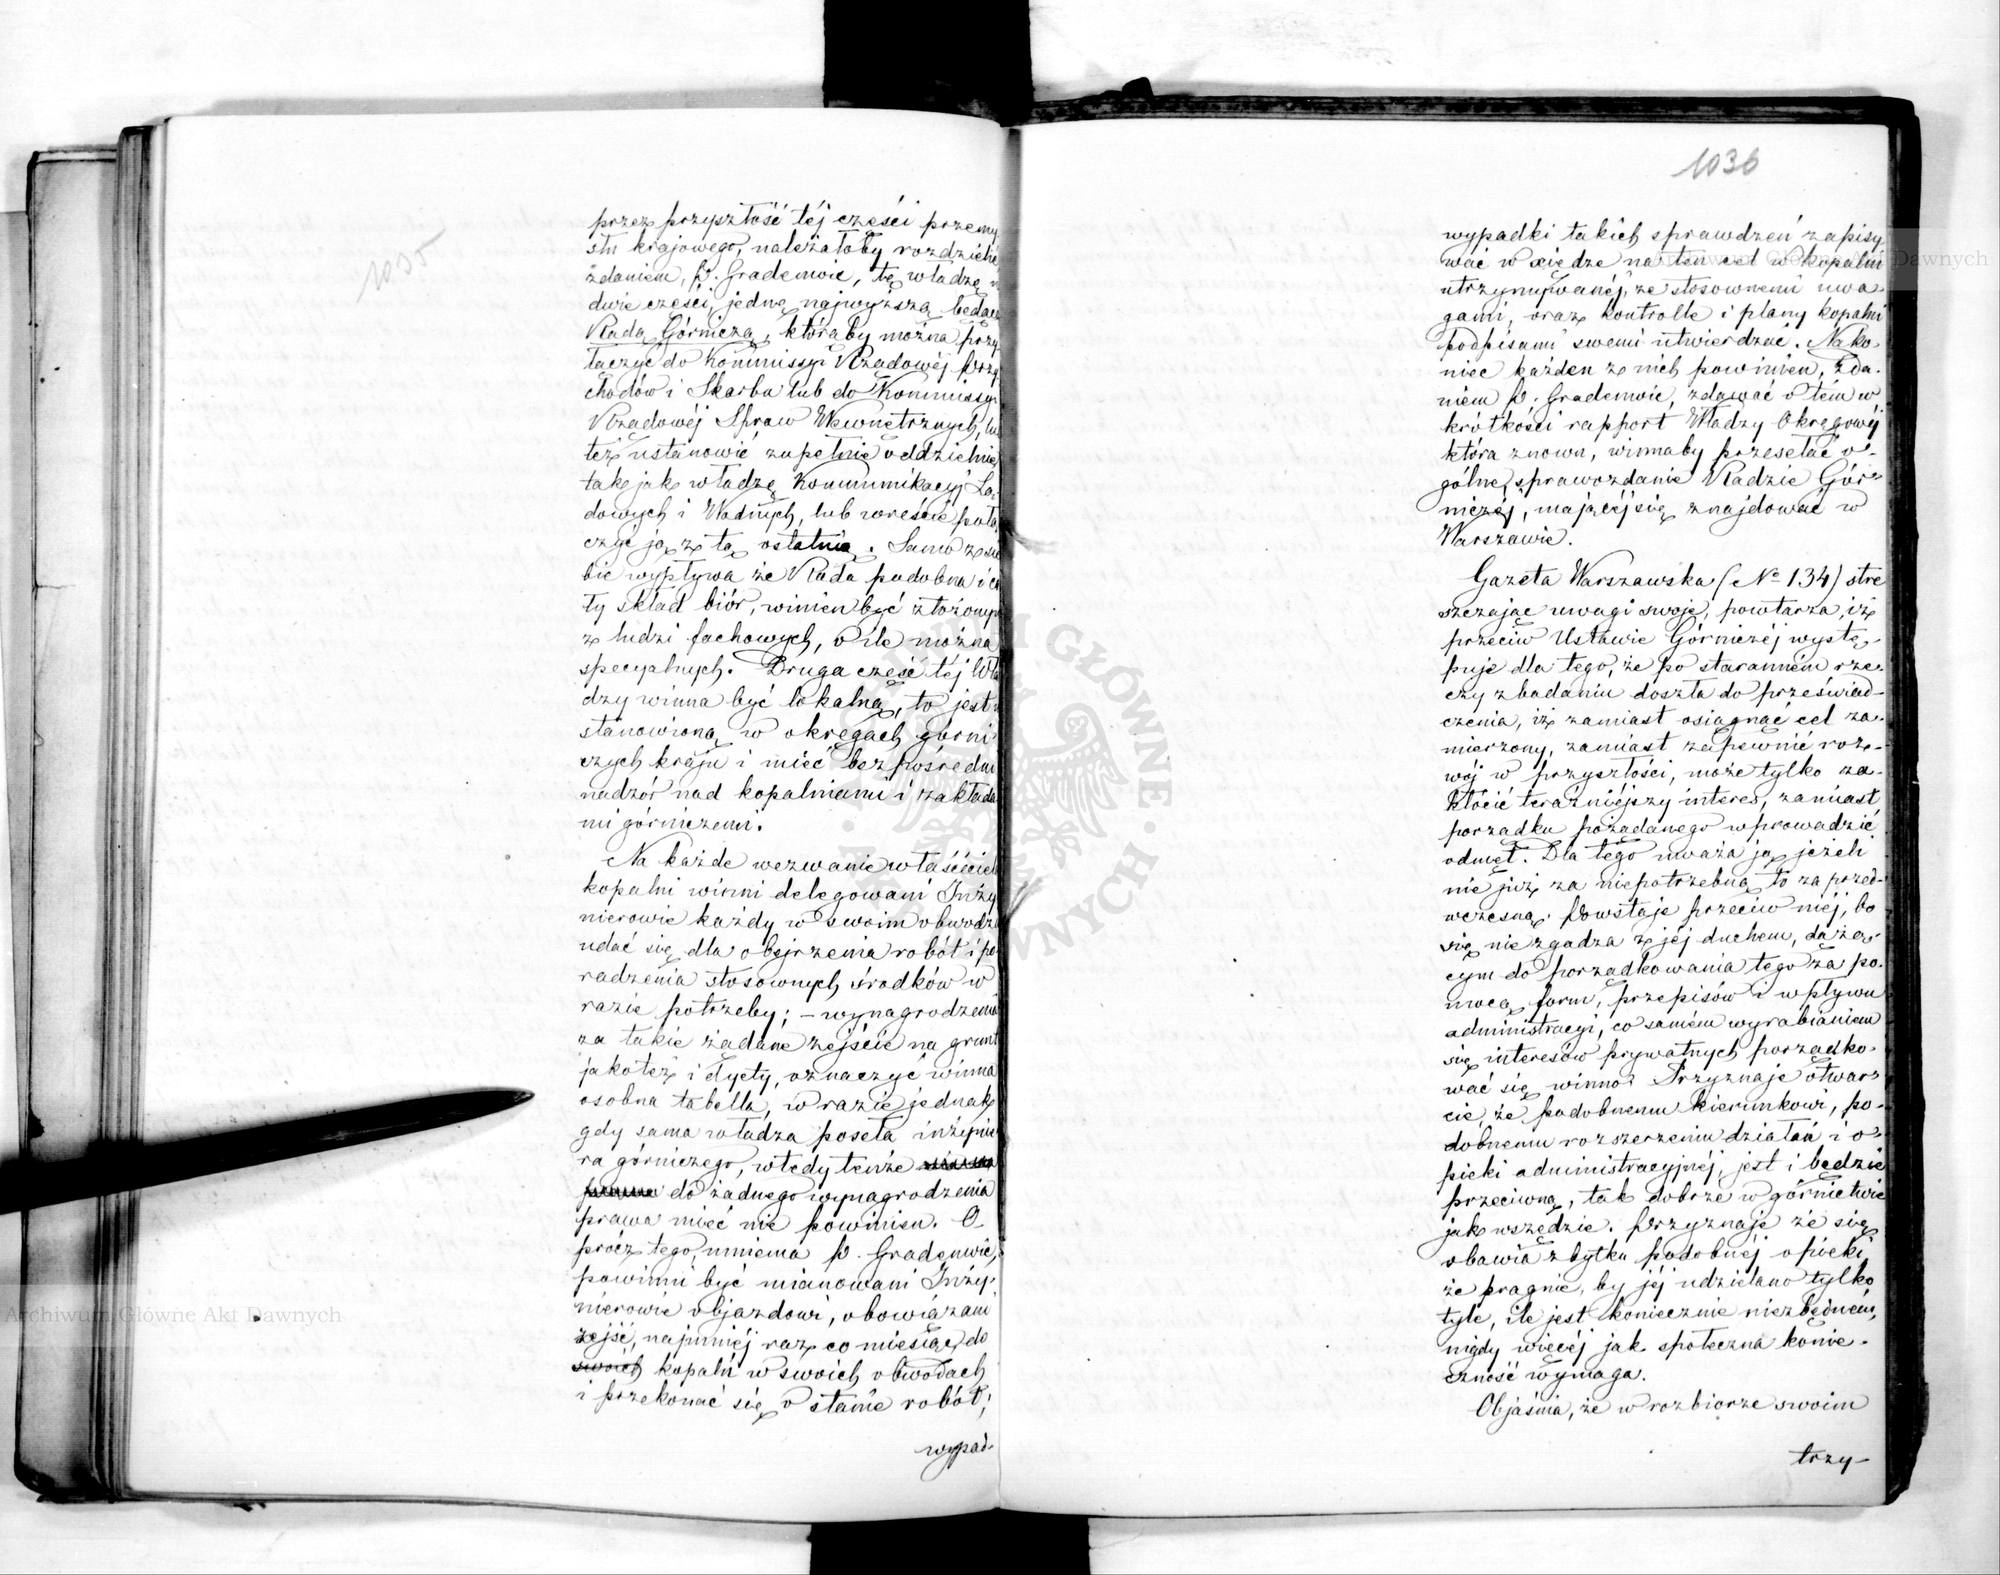 przez przyszłość téj części przemy
słu krajowego, należałoby rozdzielić
zdaniem, P. Grademwic, tę władzę n
dwie części, jednę najwyższą będąc
Radą Górniczą, którąby można przy
łączyć do Kommissyi Rządowéj Przy
chodów i Skarbu lub do Kommissyi
Rządowéj Spraw Wewnętrznych, lu
téż ustanowić zupełnie oddzielnie
tak jak władzę Kommunikacyj Lą-
dowych i Wodnych, lub wreście połą
czyć ją z tą ostatnią. Samo z sie
bie wypływa że Rada podobna i ca
ły skład biór, winien być złożony
z ludzi fachowych, o ile można
specyalnych. Druga część téj Wła
dzy winna być lokalną, to jest u
stanowioną w okręgach górni
czych kraju i mieć bezpośredni
nadzór nad kopalniami i zakłada
mi górniczemi.
Na każde wezwanie właściciel
kopalni winni delegowani Inży
nierowie każdy w swoim obwodzi
udać się dla obejrzenia robót i po
radzenia stosownych środków w
razie potrzeby; – wynagrodzenie
za takie żądane zejście na grunt
jakotéż i dyety, oznaczyć winna
osobna tabella, w razie jednak
gdy sama władza poseła inżynie
ra górniczego, wtedy tenże
do żadnego wynagrodzenia
prawa mieć nie powinien. O
prócz tego, mniema P. Grademwic,
powinni być mianowani Inży-
nierowie objazdowi, obowiązani
zejść, najmniéj raz co miesiąc, do
swoich kopalń w swoich obwodach
i przekonać się o stanie robót;
wypad-
1035
1036
wypadki takich sprawdzeń zapisy
wać w xiędze na ten cel w kopalni
utrzymywanéj, ze stosownemi uwa-
gami, oraz kontrolle i plany kopalni
podpisami swemi utwierdzać. Nako-
niec każden z nich powinien, zda-
niem P. Grademwic, zdawać o tém w
krótkości rapport Władzy Okręgowéj
która znowu, winnaby przesełać o-
gólne sprawozdanie Radzie Gór-
niczéj, mającéj się znajdować w
Warszawie.
Gazeta Warszawska (No 134) stre
szczając uwagi swoje, powtarza, iż
przeciw Ustawie Górniczéj wystę-
puje dla tego, że po staranném rze-
czy zbadaniu doszła do przeświad-
czenia, iż zamiast osiągnąć cel za-
mierzony, zamiast zapewnić roz-
wój w przyszłości, może tylko za-
kłócić teraźniéjszy interes, zamiast
porządku pożądanego wprowadzić
odmęt. Dla tego uważa ją jeżeli
nie już za niepotrzebną to za przed-
wczesną. Powstaje przeciw niéj, bo
się nie zgadza z jéj duchem, dążą-
cym do porządkowania tego za po-
mocą form, przepisów i wpływu
administracyi, co samém wyrabianiem
się interesów prywatnych porządko-
wać się winno. Przyznaje otwar-
cie, że podobnemu kierunkowi, po-
dobnemu rozszerzeniu działań i o-
pieki administracyjnéj, jest i będzie
przeciwną, tak dobrze w górnictwie
jak wszędzie. Przyznaje że się
obawia zbytku podobnéj opieki,
że pragnie, by jéj udzielano tylko
tyle, ile jest koniecznie niezbędném,
nigdy więcéj jak społeczna konie-
czność wymaga.
Objaśnia, że w rozbiorze swoim
trzy-
Archiwum Główne Akt Dawnych
Archiwum Główne Akt Dawnych